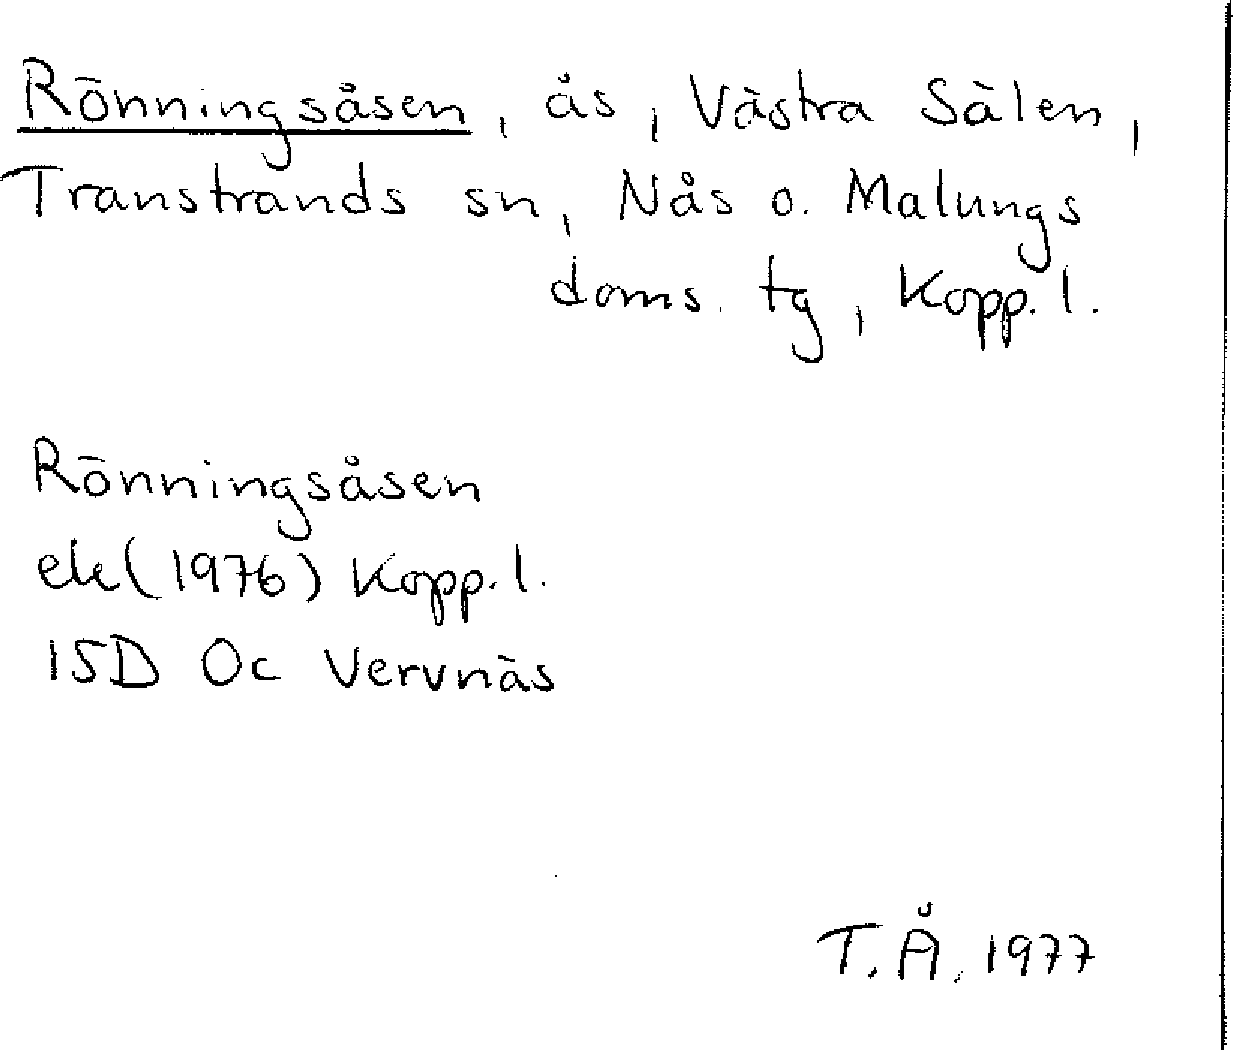 Rönningsåsen, ås, Västra Sälen,
Transtrands sn, Nås o. Malungs
doms. tg, Kopp. l.
Rönningsåsen
ek (1976) Kopp. l.
15D Oc Vervnäs
T. Å. 1977